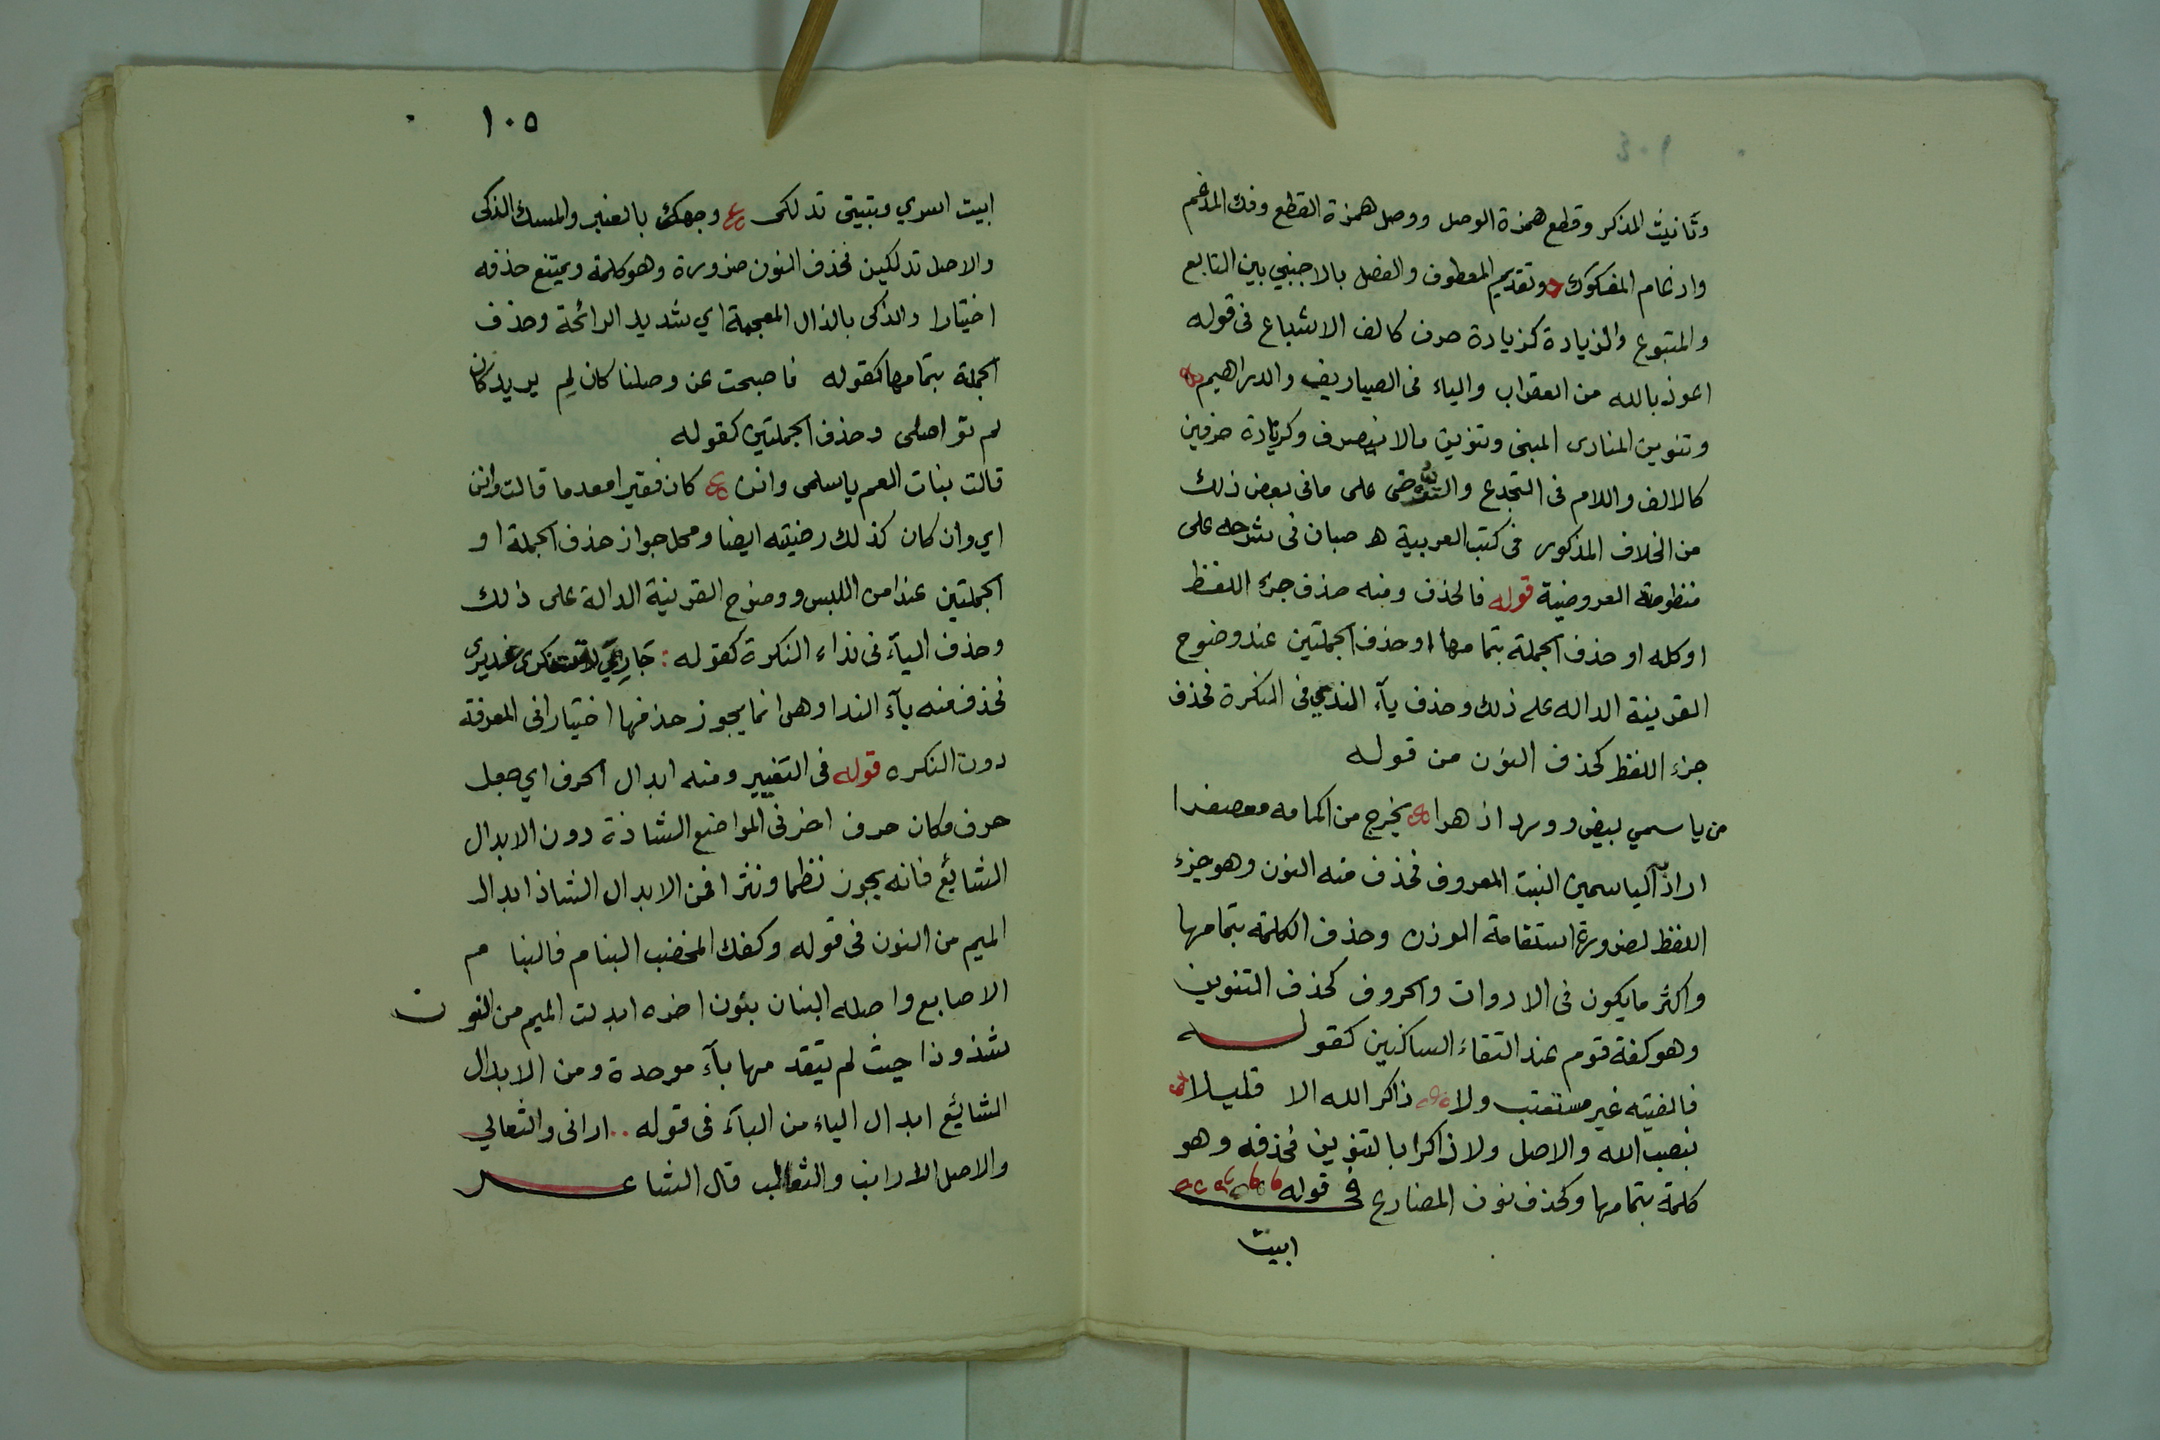 ١٠٤
وتأنيث المذكر وقطع همزة الوصل ووصل همزة القطع وفك المدغم
وادغام المفكوك وتقديم المعطوف والفصل بالاجنبي بين التابع
والمتبوع والزيادة كزيادة حرف كالف الاشباع فى قوله
اعوذ بالله من العقراب والياء فى الصياريف والدراهيم
وتنوين المنادى المبنى وتنوين مالا ينصرف وكزيادة حرفين
كالالف واللام فى اليجدع والترضى على مافى بعض ذلك
من الخلاف المذكور فى كتب العربية ه صبان فى شرحه على
منظومته العروضية قوله فالحذف ومنه حذف جزء اللفظ
اوكله او حذف الجملة بتمامها اوحذف الجملتين عند وضوح
القرينة الداله على ذلك وحذف يآء الندا فى النكرة فحذف
جزء اللفظ كحذف النون من قوله
من ياسمي بيض وورد ازهرا يخرج من اكمامه معصفرا
اراد الياسمين النبت المعروف فحذف منه النون وهو جزء
اللفظ لضرورة استقامة الوزن وحذف الكلمة بتمامها
واكثر مايكون فى الادوات والحروف كحذف التنوين
وهو كفة قوم عند التقاء الساكنين كقوله
فالفيته غير مستعتب ولا ذاكر الله الا قليلا
بنصب الله والاصل ولا ذاكرا بالتنوين فحذفه وهو
كلمة بتمامها وكحذف نون المضارع فى قوله
ابيت
١٠٥
ابيت اسري وتبيتى تدلكى وجهك بالعنبر والمسك الذكى
والاصل تدلكين فحذف النون ضرورة وهو كلمة ويمتنع حذفه
اختيارا والذكى بالذال المعجمة اي شديد الرائحة وحذف
الجملة بتمامها كقوله فاصبحت عن وصلنا كان لم يريد كان
لم تواصلى وحذف الجملتين كقوله
قالت بنات العم يا سلمى وانن كان فقيرا معدما قالت وانن
اي وان كان كذلك رضيته ايضا ومحل جواز حذف الجملة او
الجملتين عند امن اللبس ووضوح القرنية الدالة على ذلك
وحذف اليآء فى نداء النكرة كقوله : جاري لا تستنكرى عذيرى
فحذف منه يآء الندا وهى انما يجوز حذفها اختيارا فى المعرفة
دون النكره قوله فى التغيير ومنه ابدال الحرف اي جعل
حرف مكان حرف اخر فى المواضع الشاذة دون الابدال
الشائع فانه يجوز نظما ونثرا فمن الابدال الشاذ ابدال
الميم من النون فى قوله وكفك المخضب البنام فالبنا م
الاصابع واصله البنان بنون اخره ابدلت الميم من النون
شذوذا حيث لم يتقدمها بآء موحدة ومن الابدال
الشائع ابدال الياء من البآء فى قوله .. ارانى والثعالي
والاصل الارانب والثعالب قال الشاعر